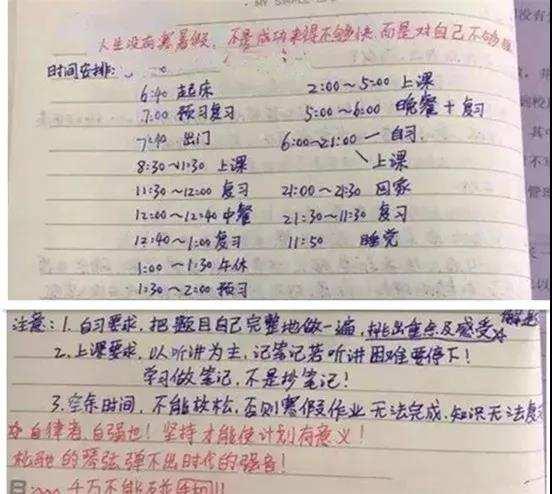 MY SIMPLE
人生没有寒暑假,不是成功来得不够快,而是对自己不够狠
时间安排:
6:40 起床
7:00 预习复习
7:40 出门
8:30~11:30 上课
11:30~12:00 复习
12:00~12:40 中餐
12:40~1:00 复习
1:00~1:30 午休
1:30~2:00 预习
2:00~5:00 上课
5:00~6:00 晚餐+复习
6:00~21:00 — 自习
上课
21:00~21:30 回家
21:30~11:30 复习
11:50 睡觉
注意:1.自习要求,把题目自己完整地做一遍,挑出重点及感受
2.上课要求,以听讲为主,记笔记若听讲困难要停下!
学习做笔记,不是抄笔记!
3.空余时间,不能放松,否则寒假作业无法完成,知识无法复
自律者,自强也!坚持才能使计划有意义!
松弛的琴弦弹不出时代的强音!
千万不能